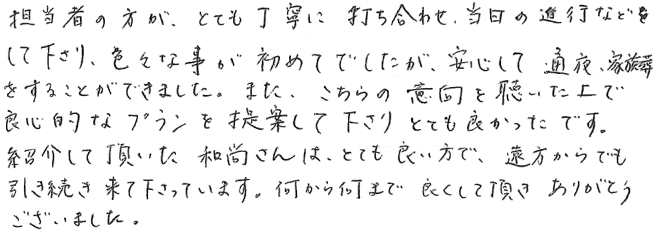 担当者の方が、とても丁寧に打ち合わせ、当日の進行などを
して下さり、色々な事が初めてでしたが、安心して通夜、家族葬
をすることができました。また、こちらの意向を聴いた上で
良心的なプランを提案して下さりとても良かったです。
紹介して頂いた和尚さんは、とても良い方で、遠方からでも
引き続き来て下さっています。何から何まで良くして頂きありがとう
ございました。